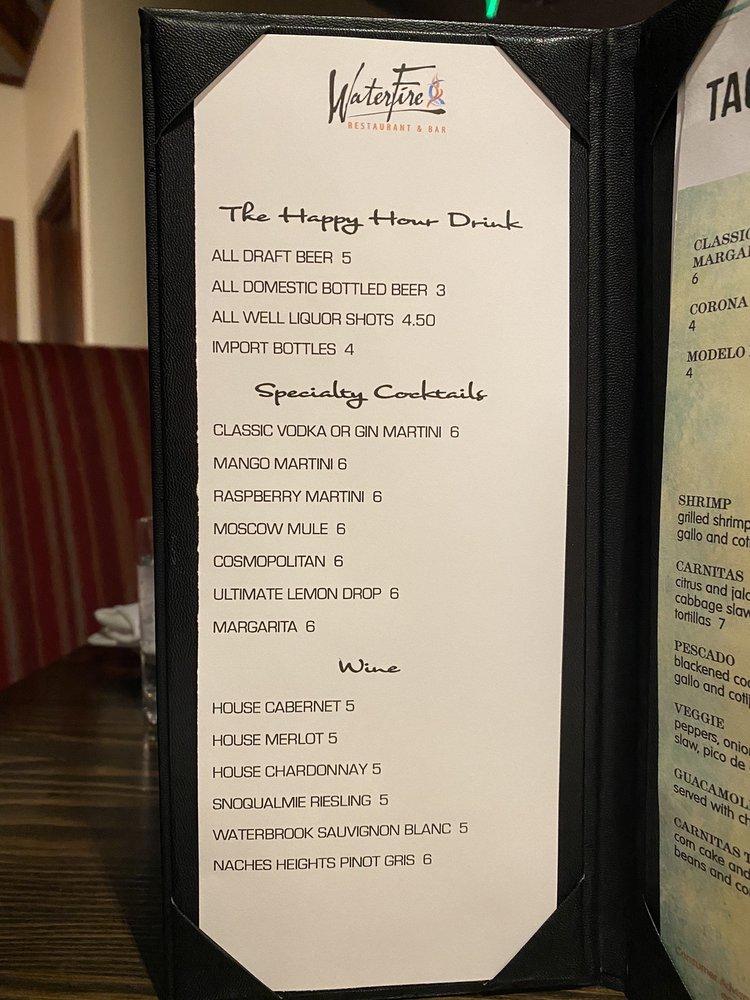 WaterFire
RESTAURANT & BAR
The Happy Hour Drink
ALL DRAFT BEER 5
ALL DOMESTIC BOTTLED BEER 3
ALL WELL LIQUOR SHOTS 4.50
IMPORT BOTTLES 4
Specialty Cocktails
CLASSIC VODKA OR GIN MARTINI 6
MANGO MARTINI 6
RASPBERRY MARTINI 6
MOSCOW MULE 6
COSMOPOLITAN 6
ULTIMATE LEMON DROP 6
MARGARITA 6
Wine
HOUSE CABERNET 5
HOUSE MERLOT 5
HOUSE CHARDONNAY 5
SNOQUALMIE RIESLING 5
WATERBROOK SAUVIGNON BLANC 5
NACHES HEIGHTS PINOT GRIS 6
CLASSIC
6
CORONA
4
MODELO
4
SHRIMP
grilled shrimp
gallo and
CARNITAS
citrus and
cabbage slaw
tortillas 7
PESCADO
blackened
gallo and
VEGGIE
peppers,
slaw, pico de
served with
CARNITAS
corn cake and
beans and
Consumer